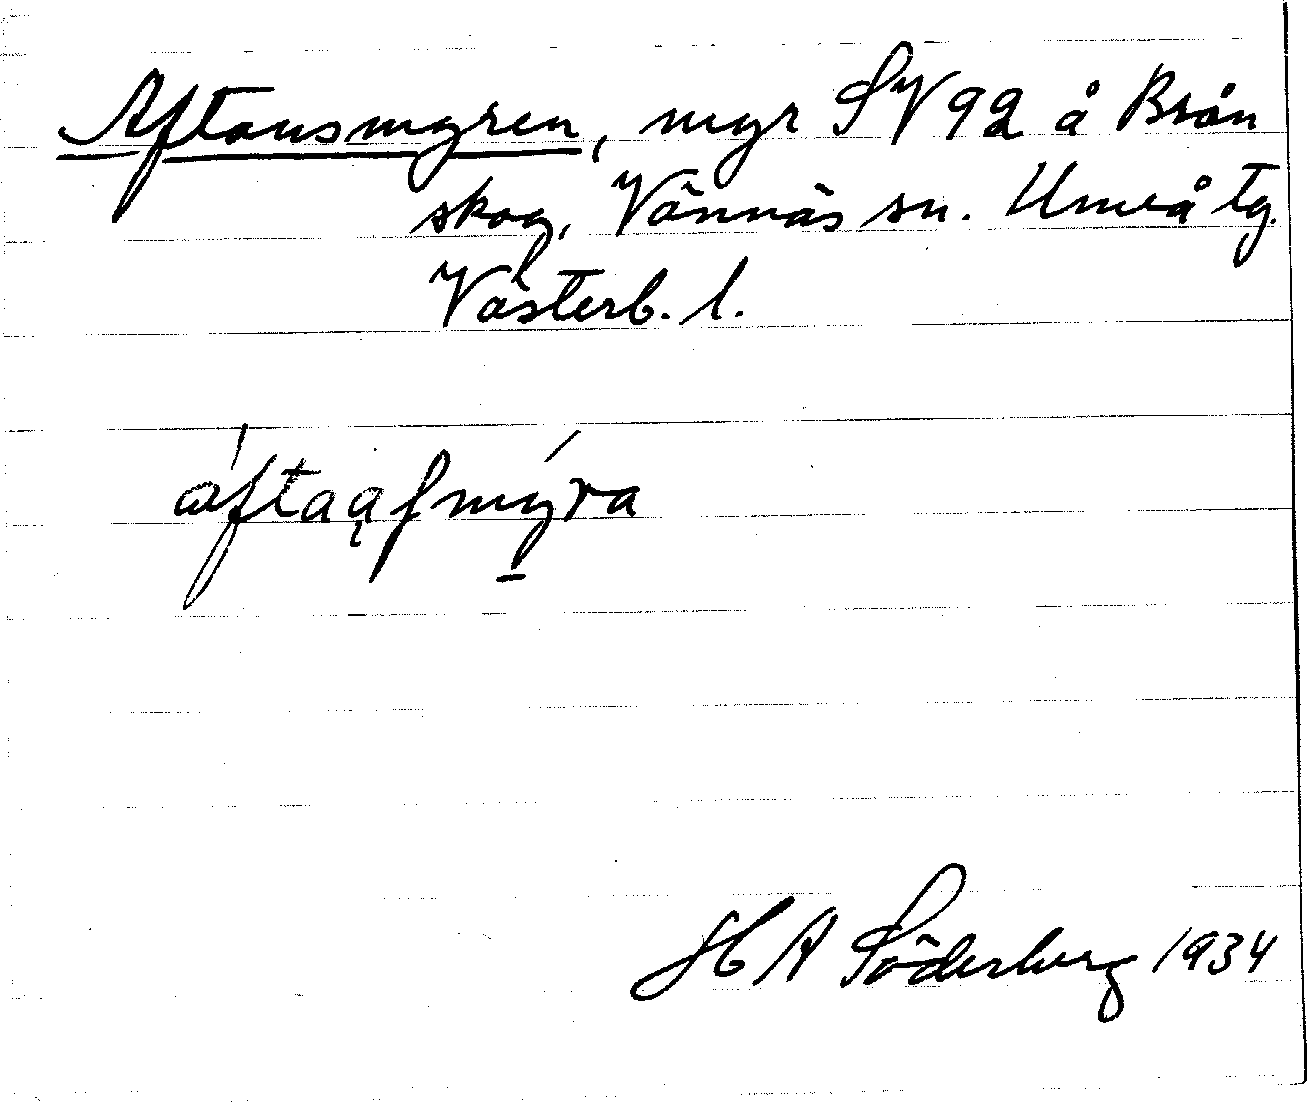 Aftonsmyren, myr SV 92 å Brån
skog, Vännäs sn. Umeå tg.
Västerb. l.
áftąʃmýra
H A Söderberg 1934